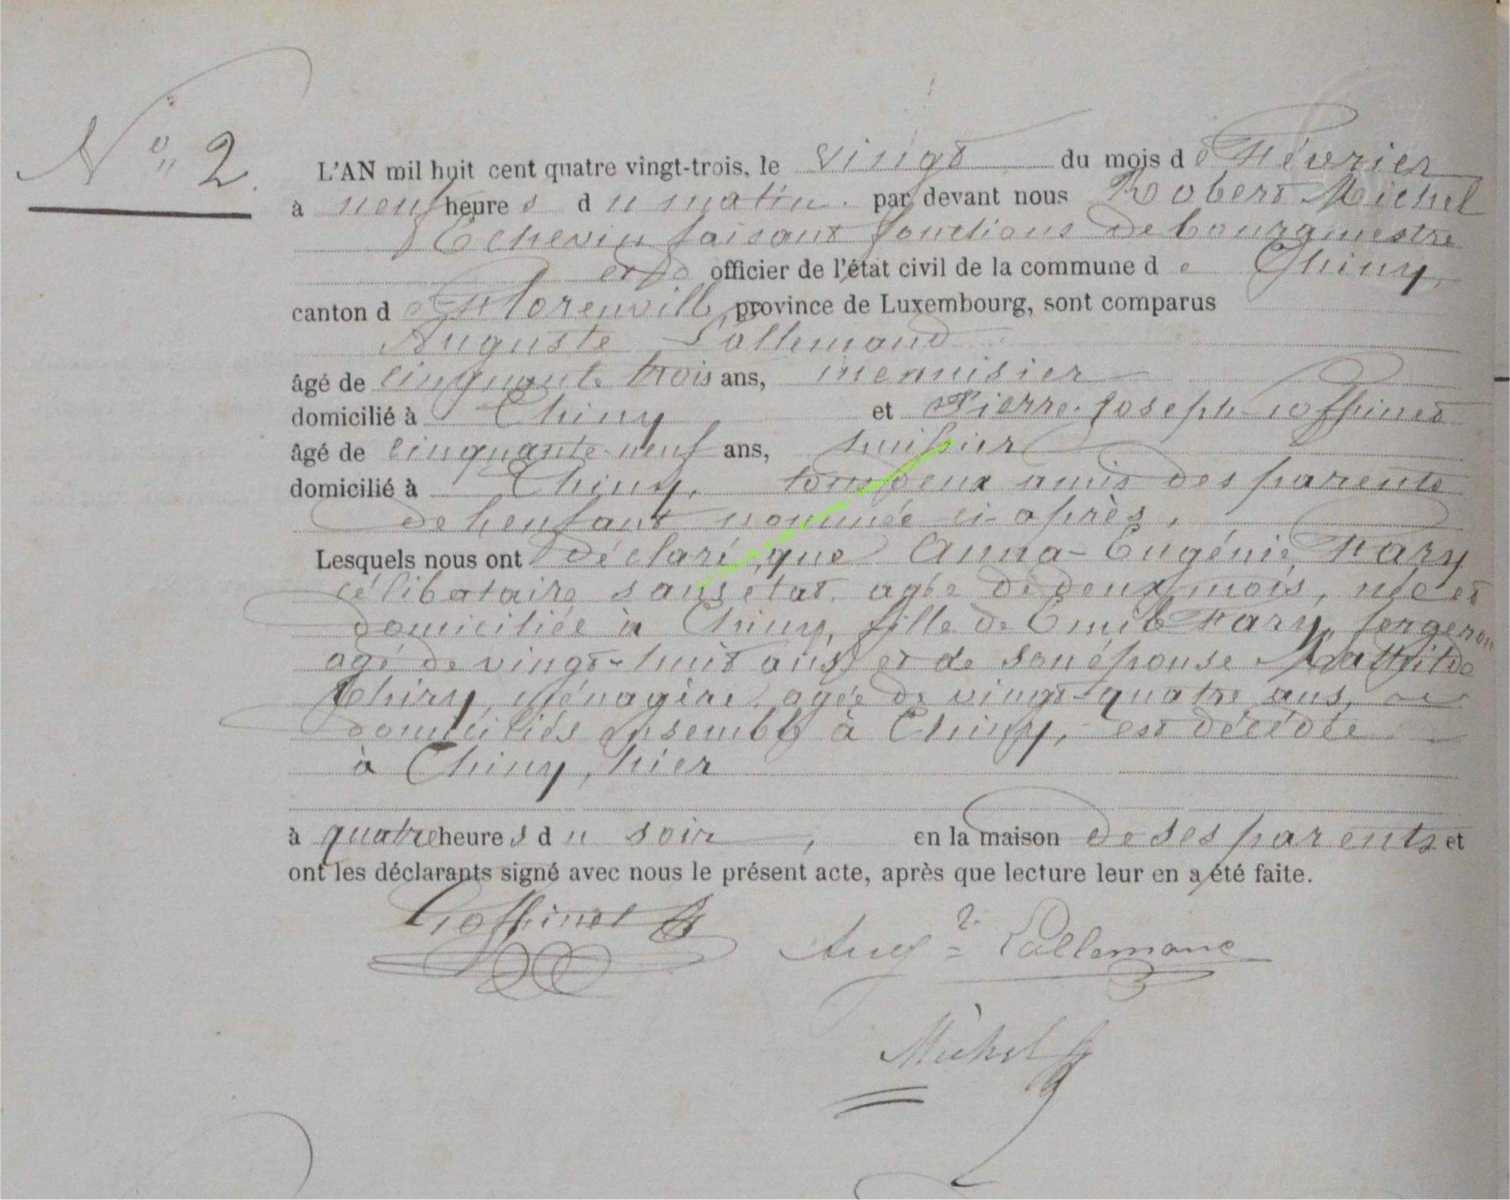 N° 2.
L'AN mil huit cent quatre vingt-trois, le vingt du mois de Février
à neuf heures du matin. par devant nous Robert Michel
Echevin faisant fonctions de bourgmestre
et officier de l'état civil de la commune de Chiny,
canton de Florenville, province de Luxembourg, sont comparus
Auguste Lallemand
âgé de cinquante trois ans, menuisier
domicilié à Chiny et Pierre-Joseph Goffinet
âgé de cinquante neuf ans, huissier
domicilié à Chiny, tous deux amis des parents
de l'enfant nommée ci-après,
Lesquels nous ont déclaré que Anna-Eugénie Hary
célibataire sans état, agée de deux mois, née et
domiciliée à Chiny, fille de Emile Hary, forgeron
agé de vingt-huit ans et de son épouse Mathilde
Thiry, ménagère, agée de vingt-quatre ans,
domiciliés ensemble à Chiny, est décédée
à Chiny, hier
à quatre heures du soir, en la maison de ses parents et
ont les déclarants signé avec nous le présent acte, après que lecture leur en a été faite.
Goffinet
Aug^te Lallemand
Michel